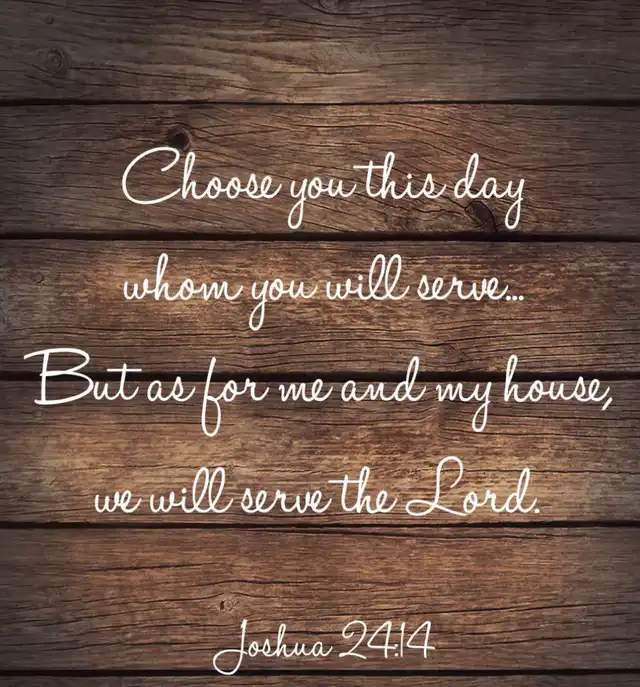 Choose you this day
whom you will serve...
But as for me and my house,
we will serve the Lord.
Joshua 24:14